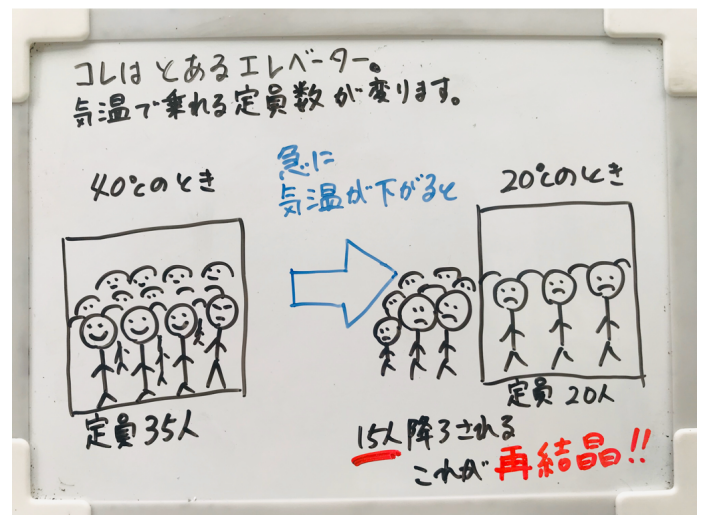 コレはとあるエレベーター。
気温で乗れる定員数が変ります。
40℃のとき
急に
気温が下がると
20℃のとき
定員35人
定員 20人
15人降ろされる
これが再結晶!!